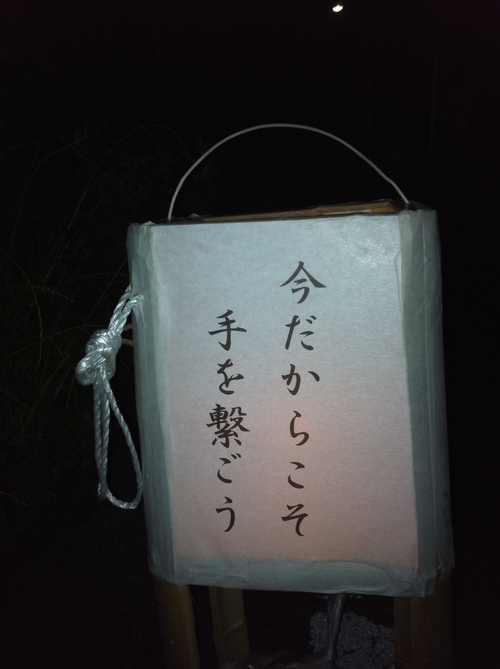 今だからこそ
手を繋ごう